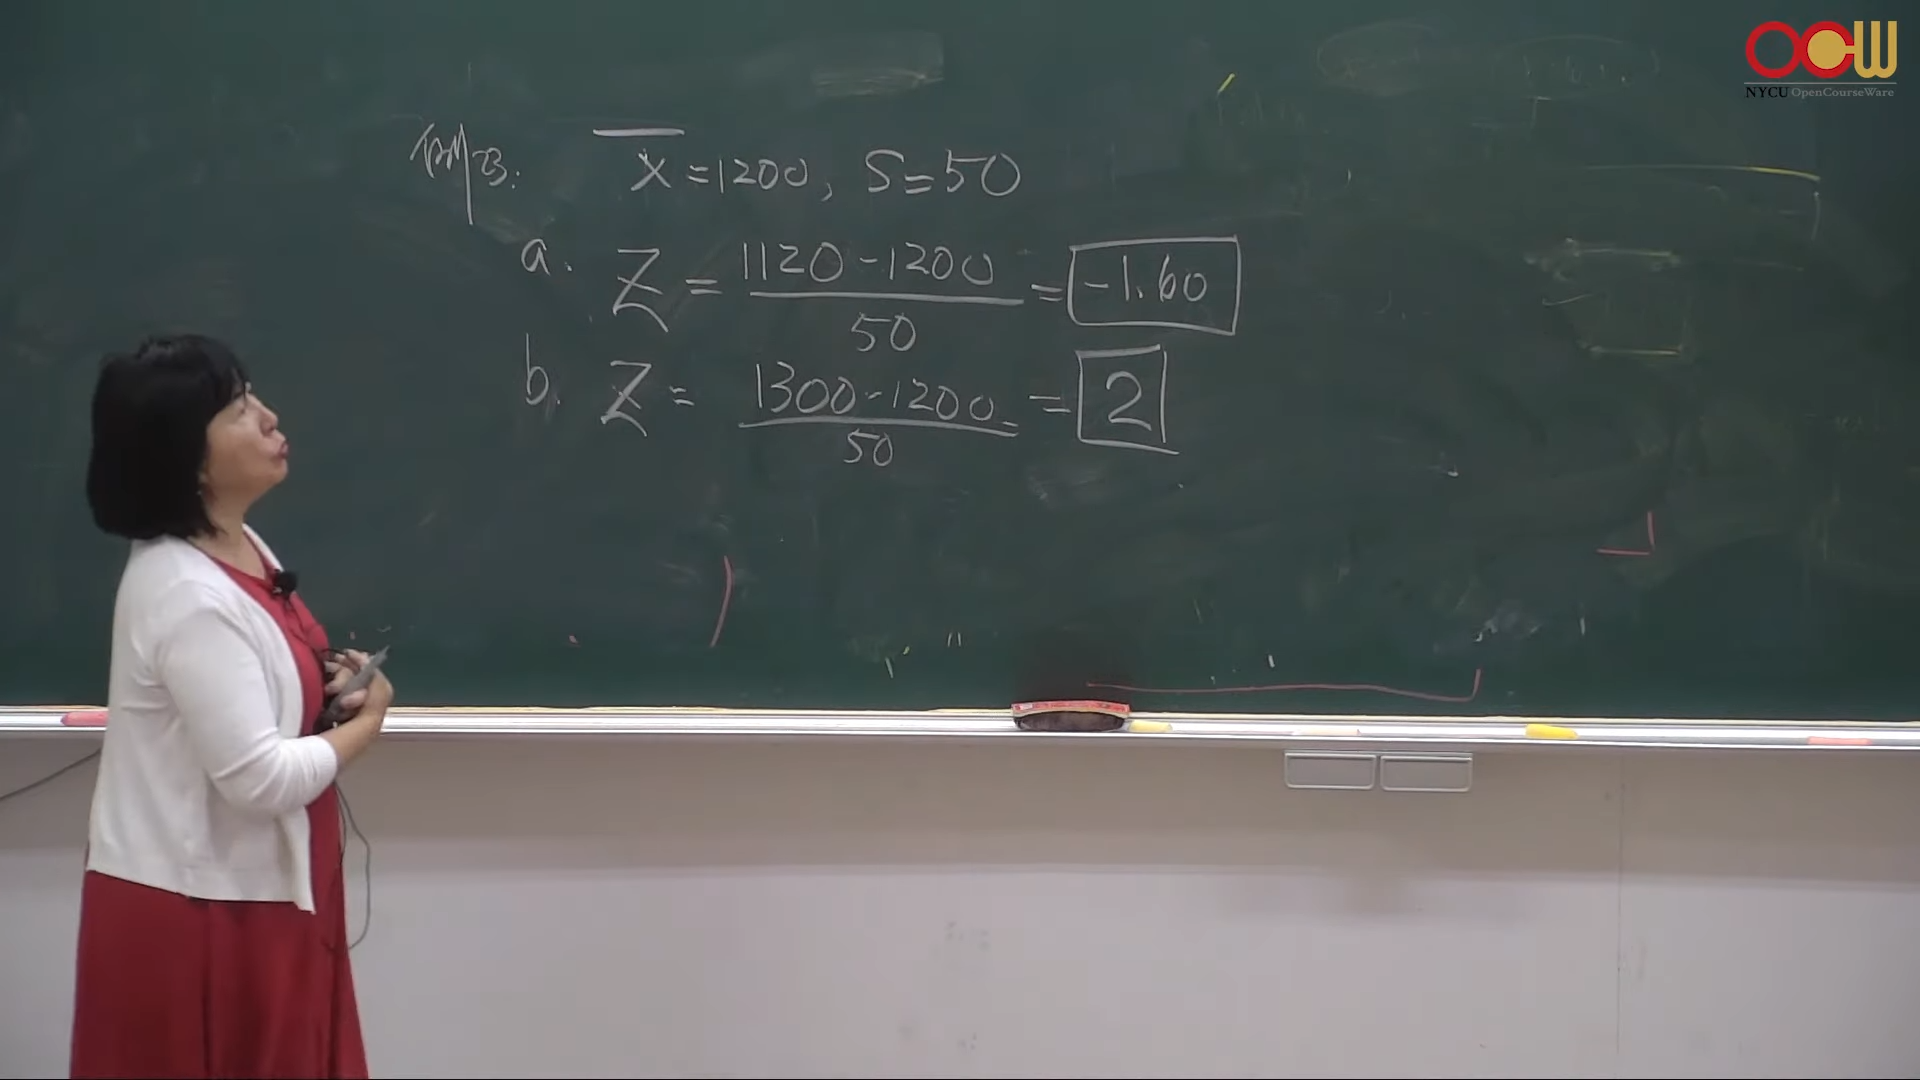 OCW
NYCU OpenCourseWare
例3: x̄ = 1200, S = 50
a. Z = (1120 - 1200) / 50 = -1.60
b. Z = (1300 - 1200) / 50 = 2